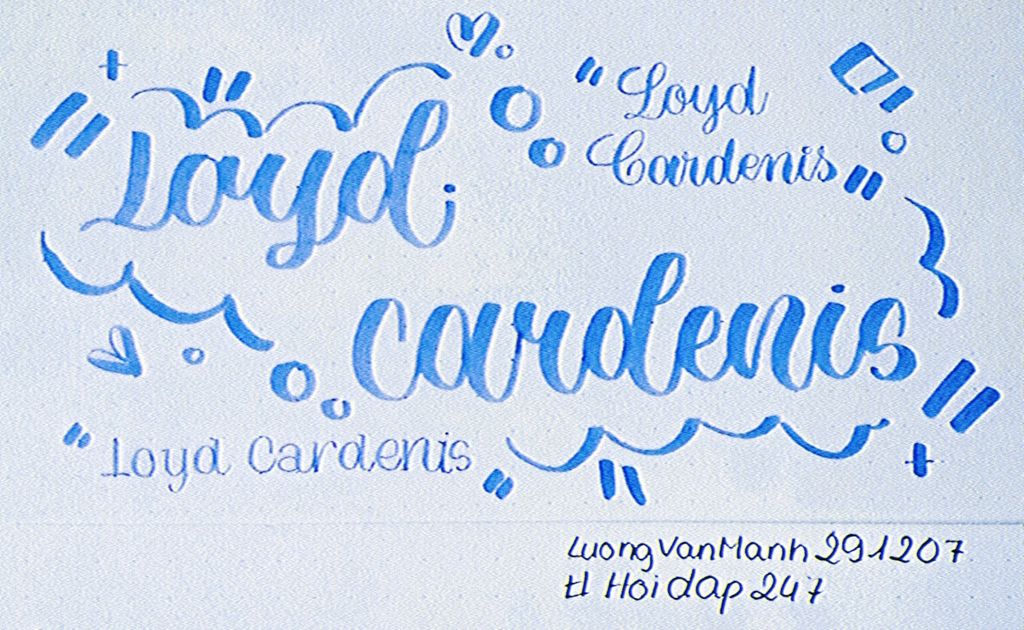 Loyd
"Loyd
Cardenis"
cardenis
"Loyd Cardenis"
LuongVanManh291207
tl Hoidap247